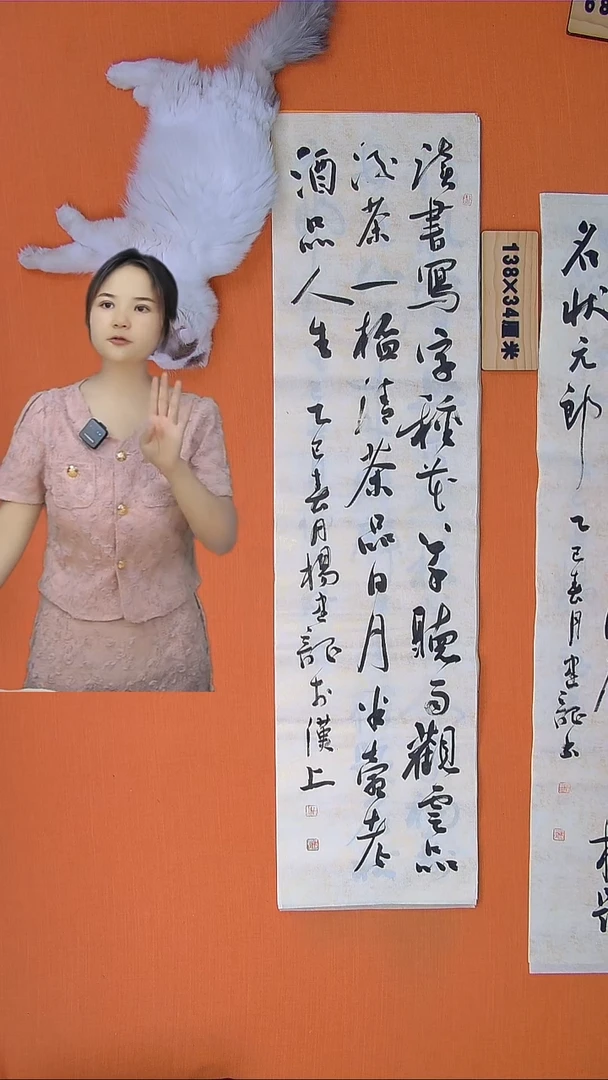 讀書寫字種花草聽雨觀雲品
酒茶一杯清茶品日月半壺老
酒品人生
乙巳春月楊書証於漢上
138×34厘米
名状元郎
乙巳春月書証書